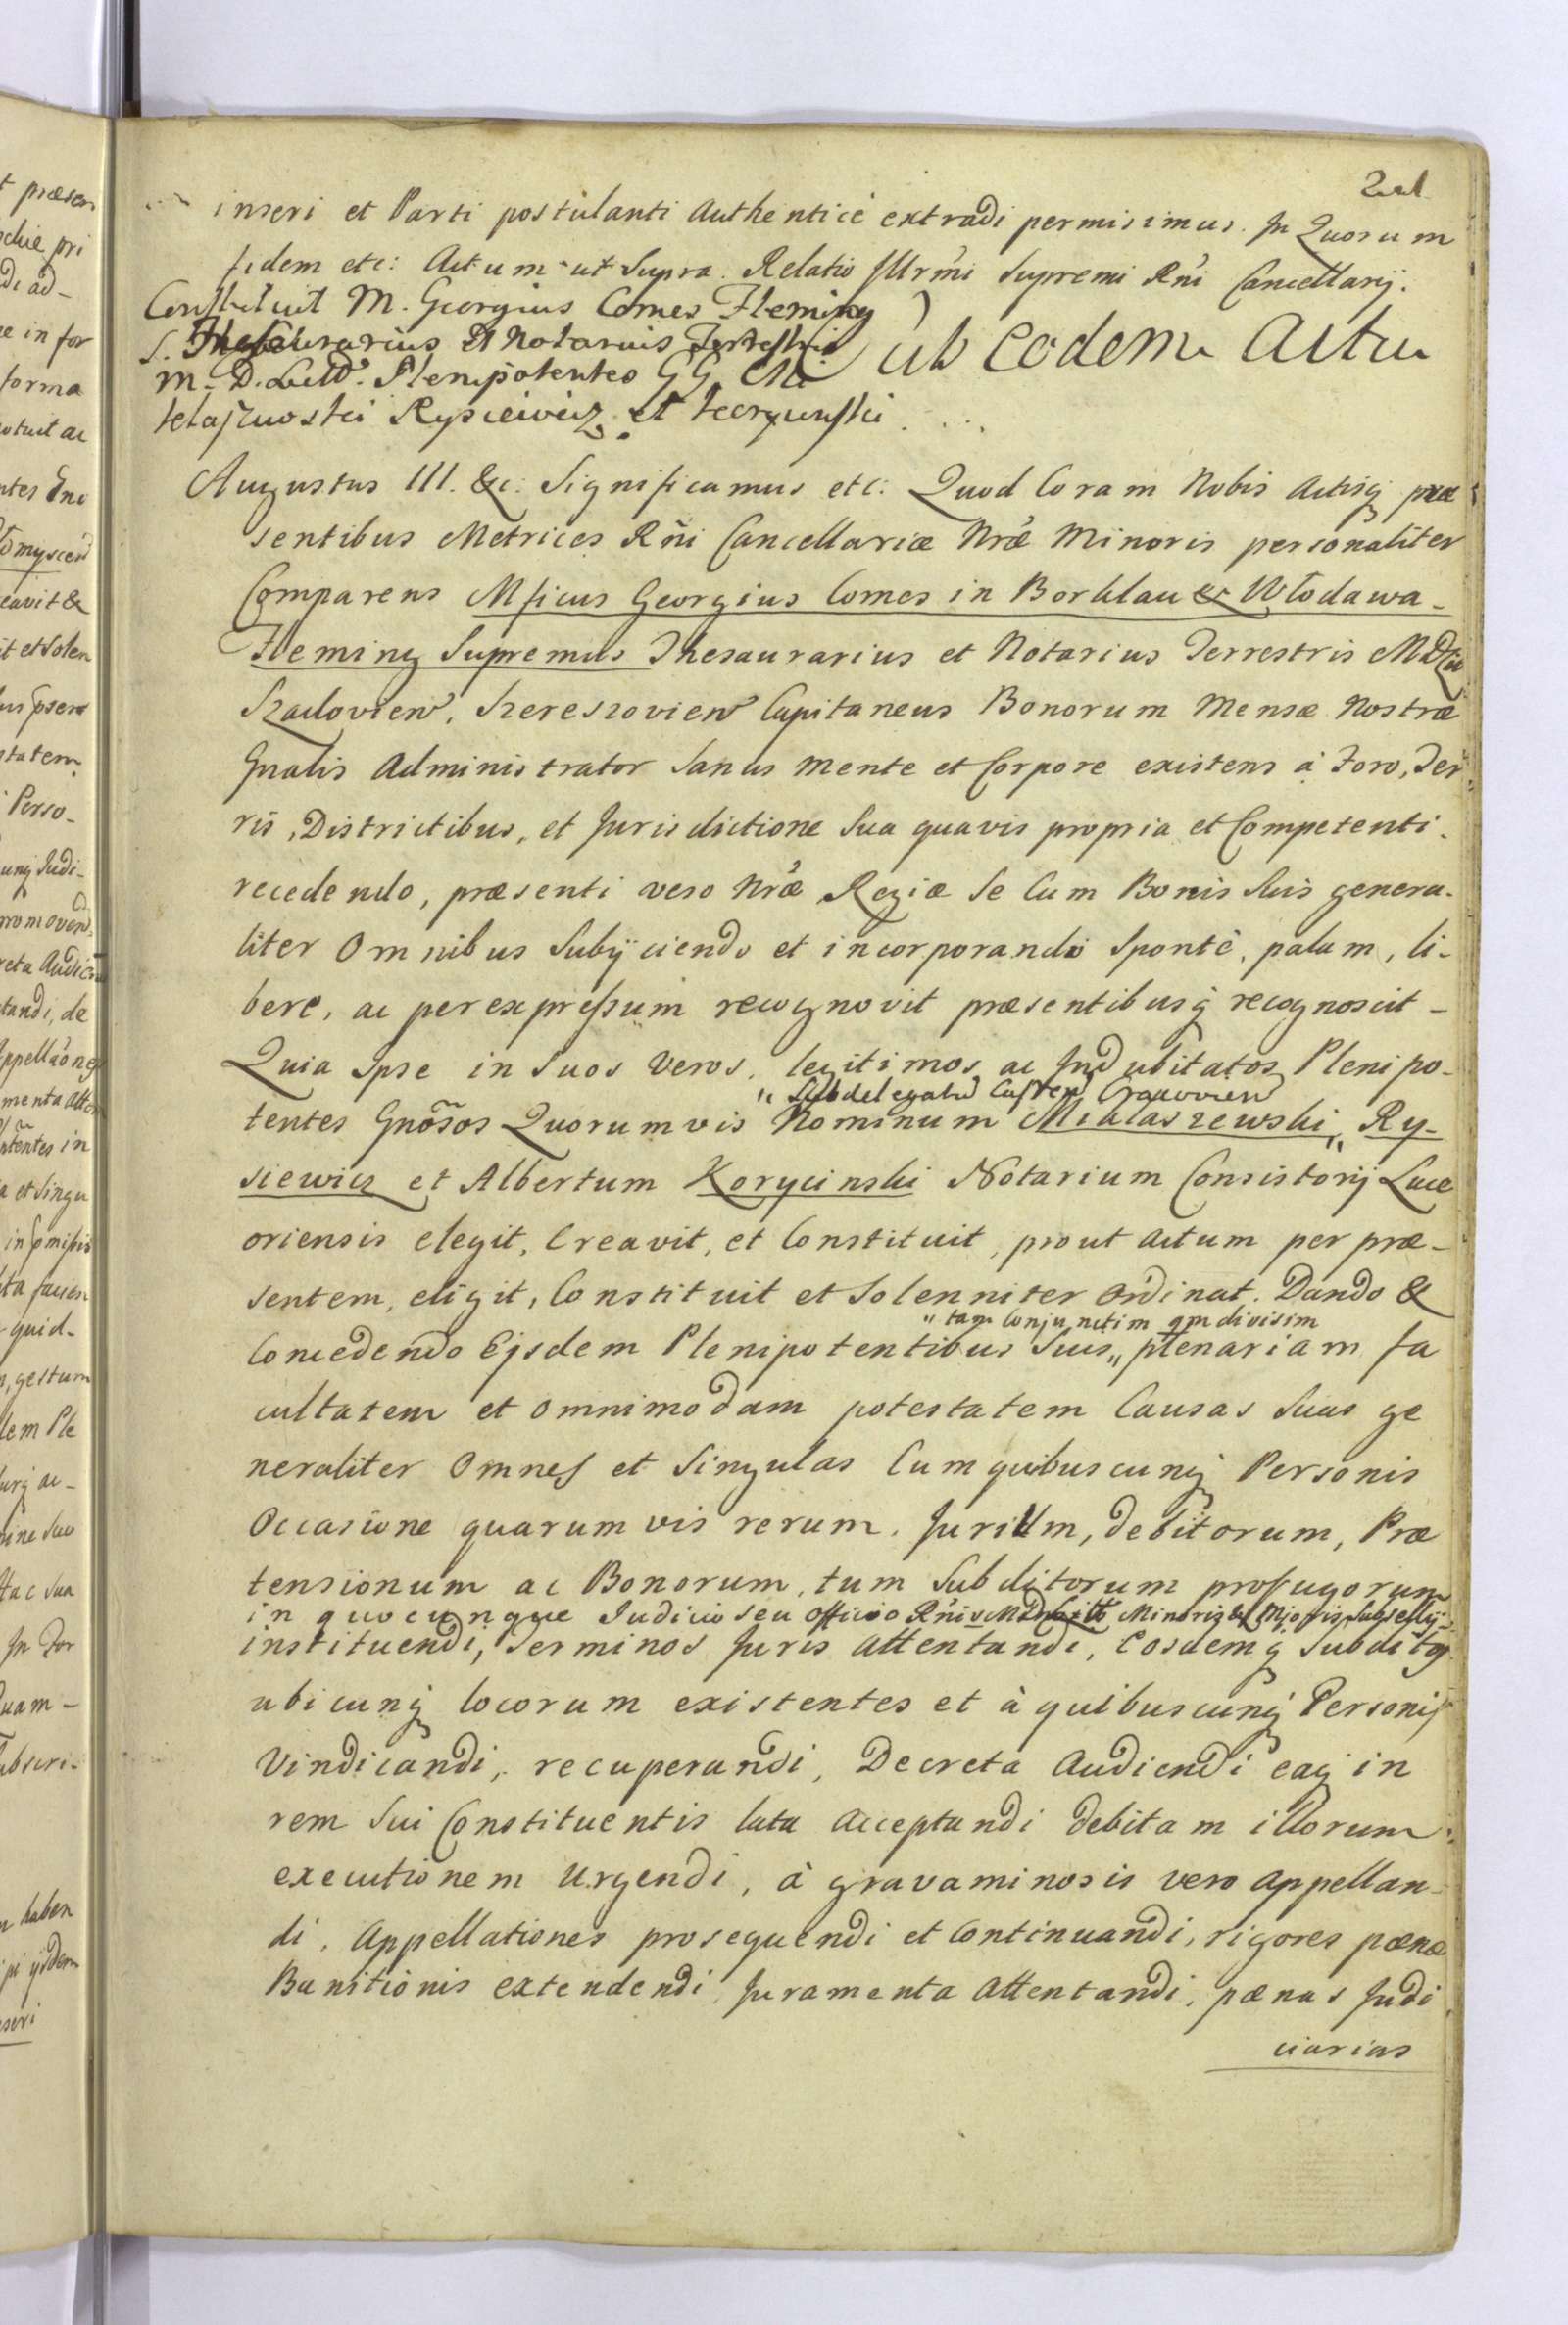 inseri et Parti postulanti Authenticè extradi permisimus. In Quorum
fidem etc: Actum ut Supra. Relatio Illrm̃i Supremi Rñi Cancellarij.
Constituit M. Georgius Comes Fleming
S. Thesaurarius et Notarius Terrestris
M. D. Litt. Plenipotentes GG.
Rysiewicz et Korycinski
Sub eodem Actu
Augustus III. &c: Significamus etc: Quod Coram Nobis Actisq præ
sentibus Metrices Rñi Cancellariæ Nræ Minoris personaliter
Comparens Mficus Georgius Comes in Borklau & Włodawa
Fleming Supremus Thesaurarius et Notarius Terrestris MDLit
Szadovien, Szereszovien Capitaneus Bonorum Mensæ Nostræ
Gnalis Administrator Sanus mente et Corpore existens à Foro, Ter
ris, Districtibus, et Jurisdictione Sua quavis propria et Competenti
recedendo, præsenti vero Nræ Regiæ Se Cum Bonis Suis genera-
liter Omnibus Subijciendo et incorporando Spontè, palam, li-
bere, ac per expressum recognovit præsentibusq recognoscit -
Quia Ipse in Suos Veros, legitimos ac Indubitatos Plenipo-
" Subdelegatu Castren Cracovien
tentes Gnõsos Quorumvis Nominum Miklaszewski " Ry-
siewicz et Albertum Korycinski Notarium Consistorij Luce
oriensis elegit, Creavit, et Constituit, prout Actum per præ-
sentem, eligit, Constituit et Solenniter Ordinat. Dando &
" tam Conjunctim qm divisim
Concedendo Eisdem Plenipotentibus Suis " plenariam fa
cultatem et omnimodam potestatem Causas Suas ge
neraliter Omnes et Singulas Cum quibuscunq Personis
Occasione quarumvis rerum, Jurium, debitorum, Præ
tensionum ac Bonorum, tum Subditorum profugorum
in quocunque Judicio seu officio Minoris & Mjoris Subsellij
instituendi, Terminos Juris Attentandi, Eosdemq Subditos
ubicunq locorum existentes et à quibuscunq Personis
Vindicandi, recuperandi, Decreta Audiendi eaq in
rem Sui Constituentis lata Acceptandi debitam illorum
executionem Urgendi, à gravaminosis vero appellan-
di, Appellationes prosequendi et Continuandi, rigores pænæ
Banitionis extendendi, Juramenta Attentandi, pænas Judi
ciarias